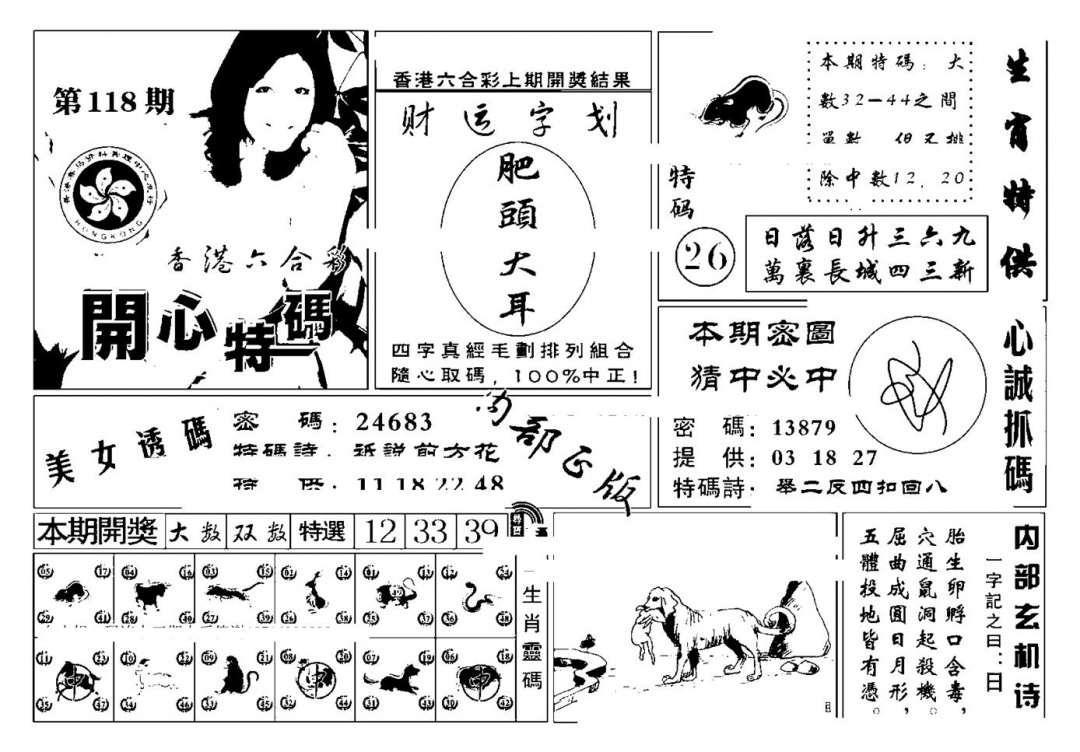 第118期
HONGKONG
香港六合彩
開心特碼
香港六合彩上期開獎結果
财运字划
肥頭大耳
四字真經毛劃排列組合
隨心取碼，100%中正！
本期特碼：大
數32—44之間
單數 但无排
除中數12，20
特码
26
日落日升三六九
萬裏長城四三新
生宵特供
本期密圖
猜中必中
密碼：13879
提供：03 18 27
特碼詩：舉二反四扣回八
心誠抓碼
美女诱碼
密碼：24683
特碼詩：祗説前方花
特供：11 18 22 48
内部正版
本期開獎 大数 双数 特選 12 33 39
一生肖靈碼
内部玄机诗
一字記之曰：日
胎生卵孵口含毒，
穴通鼠洞起殺機。
屈曲成圓日月形，
五體投地皆有憑。